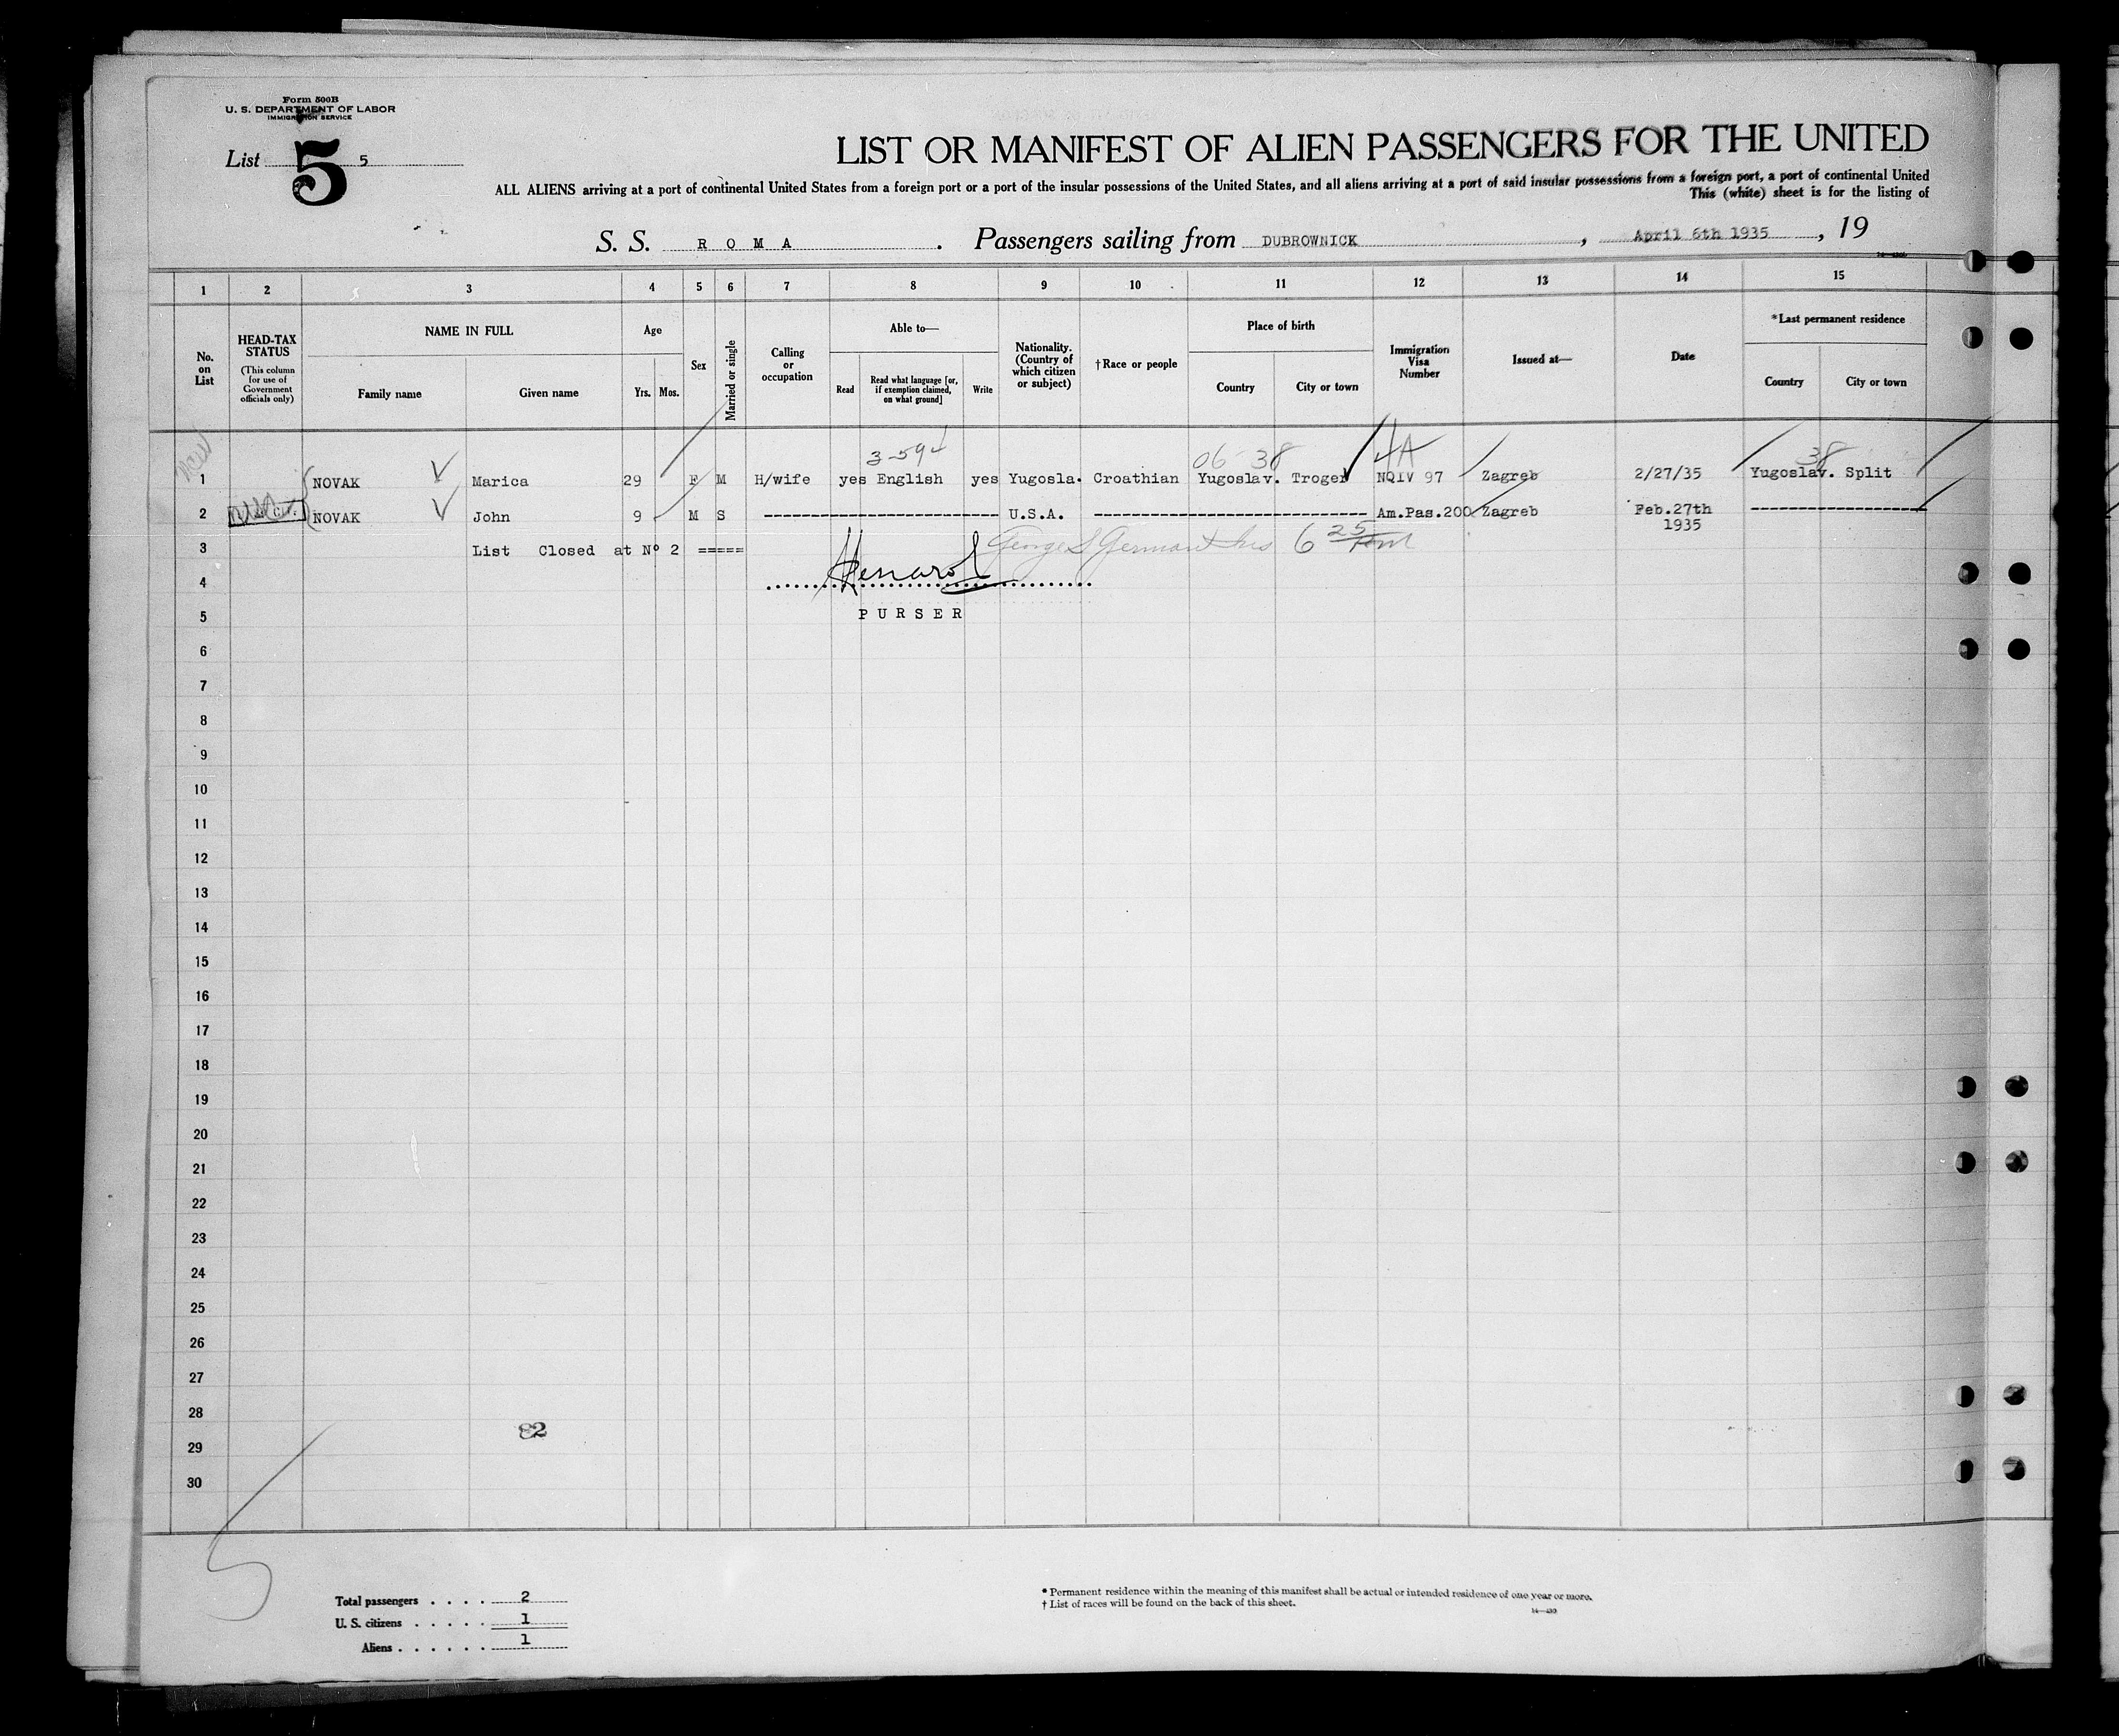 Form 500B
U. S. DEPARTMENT OF LABOR
IMMIGRATION SERVICE
List 5 5
LIST OR MANIFEST OF ALIEN PASSENGERS FOR THE UNITED
ALL ALIENS arriving at a port of continental United States from a foreign port or a port of the insular possessions of the United States, and all aliens arriving at a port of said insular possessions from a foreign port, a port of continental United
This (white) sheet is for the listing of
S. S. R O M A . Passengers sailing from DUBROWNICK , April 6th 1935 , 19
1 2 3 4 5 6 7 8 9 10 11 12 13 14 15
No. on List
HEAD-TAX STATUS (This column for use of Government officials only)
NAME IN FULL
Family name Given name
Age
Yrs. Mos.
Sex
Married or single
Calling or occupation
Able to—
Read Read what language [or, if exemption claimed, on what ground] Write
Nationality. (Country of which citizen or subject)
†Race or people
Place of birth
Country City or town
Immigration Visa Number
Issued at—
Date
*Last permanent residence
Country City or town
3-594 06 38 4A 38
1 NOVAK Marica 29 F M H/wife yes English yes Yugosla. Croathian Yugoslav. Troger NQIV 97 Zagreb 2/27/35 Yugoslav. Split
2 NOVAK John 9 M S U.S.A. Am.Pas.200 Zagreb Feb.27th 1935
3 List Closed at Nº 2 =====
4
5 PURSER
6
7
8
9
10
11
12
13
14
15
16
17
18
19
20
21
22
23
24
25
26
27
28
82
29
30
Total passengers . . . . 2
U. S. citizens . . . . . 1
Aliens . . . . . . 1
* Permanent residence within the meaning of this manifest shall be actual or intended residence of one year or more.
† List of races will be found on the back of this sheet.